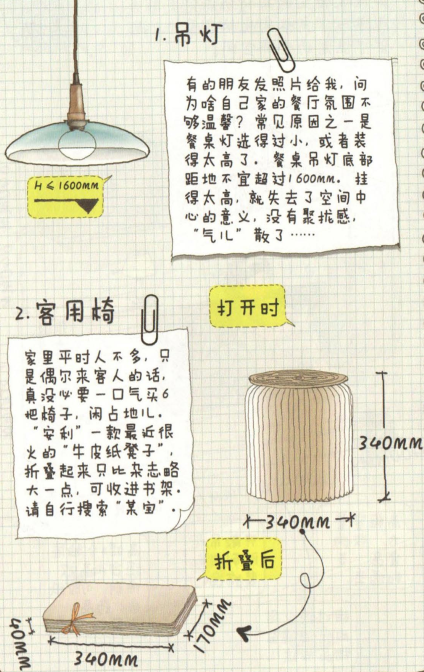 1.吊灯
有的朋友发照片给我，问
为啥自己家的餐厅氛围不
够温馨？常见原因之一是
餐桌灯选得过小，或者装
得太高了。餐桌吊灯底部
距地不宜超过1600mm。挂
得太高，就失去了空间中
心的意义，没有聚拢感，
“气儿”散了……
H≤1600MM
2.客用椅
家里平时人不多，只
是偶尔来客人的话，
真没必要一口气买6
把椅子，闲占地儿。
“安利”一款最近很
火的“牛皮纸凳子”，
折叠起来只比杂志略
大一点，可收进书架。
请自行搜索“某宝”。
打开时
340MM
340MM
折叠后
40MM
340MM
170MM